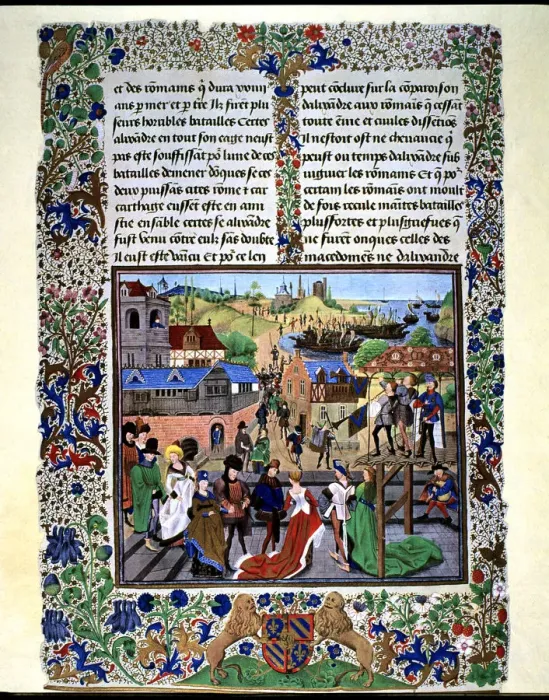 et des rommains q̄ dura vviiii
ans p mer et p tre Jlz firēt plu
seurs horribles batailles Certes
alixādre en tout son eage neust
pas este souffissāt po᷒ lune de ces
batailles demener dōques se ces
deux puissās cites rome et car
carthage eussēt este en ami
stie ensāble certes se alixādre
fust venu cōtre eulx sās doubte
il eust este vaīcu Et po᷒ ce len
peut cōclure sur la cōparoison
dalixādre aux rōmais q̄ cessāt
toute ēnuie et ciuiles discētiōs
il nestoit ost ne cheuance q̄
peust ou temps dalixādre sub
iuguier les rōmains Et q̄ po᷒
certain les rōmais ont moult
de fois receu maītes batailles
plus fortes et plus griefues q̄
ne furēt onques celles des
macedonies ne dalixandre